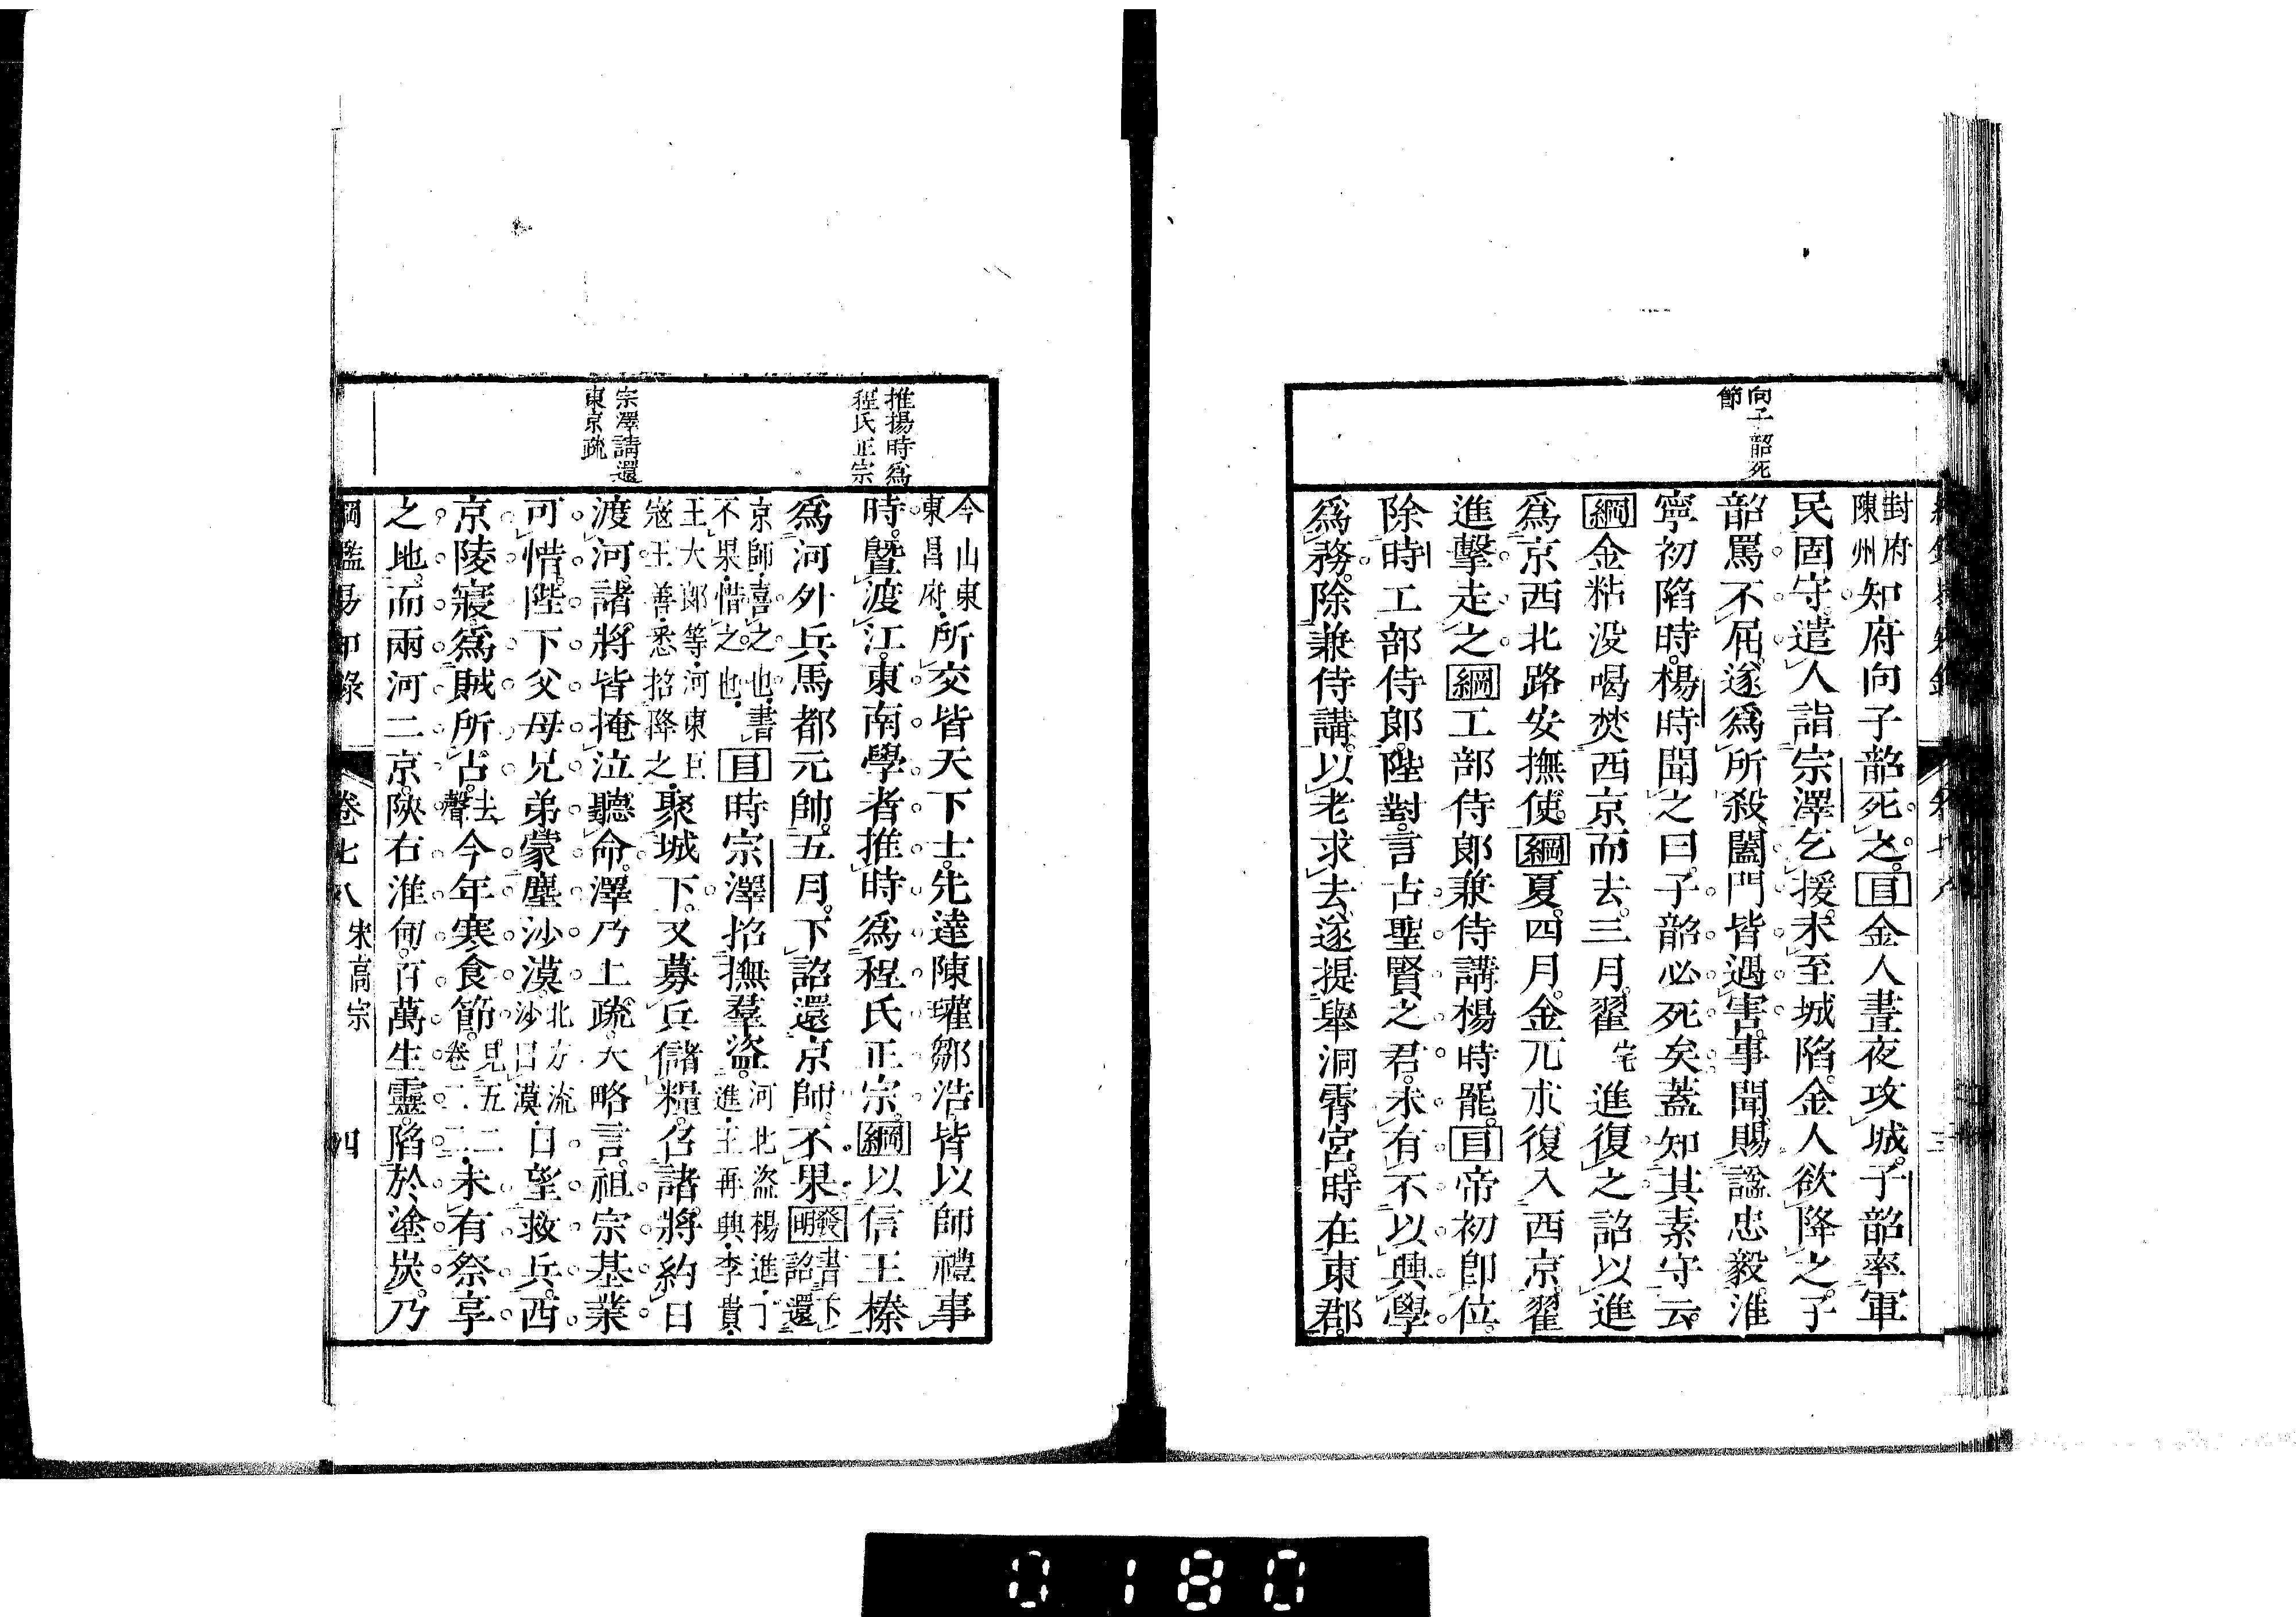 向子韶死
節
對府
陳州
知府向子韶死之目金人晝夜攻城子韶率軍
民固守遣人詣宗澤乞援未至城陷金人欲降之子
韶罵不屈遂爲所殺闔門皆遇害事聞賜諡忠毅淮
寧初陷時楊時聞之曰子韶必死矣蓋知其素守云
綱金粘没喝焚西京而去三月翟進復之詔以進
爲京西北路安撫使綱夏四月金兀朮復入西京翟
進擊走之綱工部侍郎兼侍講楊時罷目帝初卽位
除時工部侍郎陛對言古聖賢之君未有不以興學
爲務除兼侍講以老求去遂提舉洞霄宮時在東郡
推楊時爲
程氏正宗
宗澤請還
東京疏
今山東
東昌府
所交皆天下士先達陳瓘鄒浩皆以師禮事
時曁渡江東南學者推時爲程氏正宗綱以信王榛
爲河外兵馬都元帥五月下詔還京師不果發明書下詔還
京師喜之也書
不果惜之也
目時宗澤招撫羣盜河北盜楊進丁
進王再興李貴
王大郎等河東巨
寇王善悉招降之
聚城下又募兵儲糧召諸將約日
渡河諸將皆掩泣聽命澤乃上疏大略言祖宗基業
可惜陛下父母兄弟蒙塵沙漠北方流
沙曰漠
日望救兵西
京陵寢爲賊所占去聲今年寒食節見五二
卷二二
未有祭享
之地而兩河二京陝右淮甸百萬生靈陷於塗炭乃
綱鑑易知錄 卷七八 宋高宗 四
0180